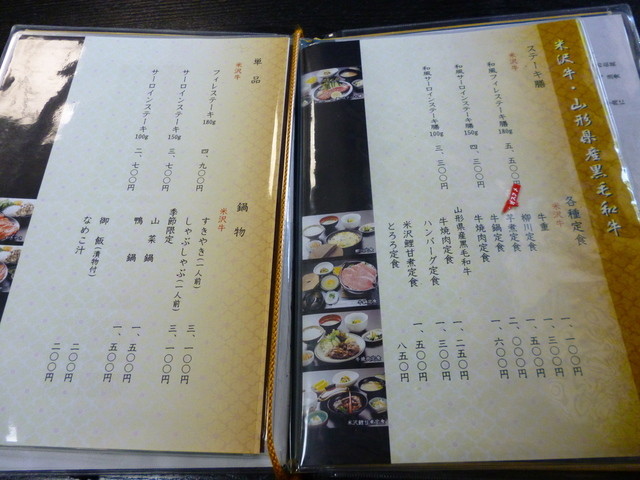 米沢牛・山形県産黒毛和牛
ステーキ膳
米沢牛
和風フィレステーキ膳 180g 五、五〇〇円
和風サーロインステーキ膳 150g 四、三〇〇円
和風サーロインステーキ膳 100g 三、三〇〇円
各種定食
米沢牛
牛重 一、一〇〇円
柳川定食 一、三〇〇円
芋煮定食 一、五〇〇円
牛鍋定食 二、〇〇〇円
牛焼肉定食 一、六〇〇円
山形県産黒毛和牛
牛焼肉定食 一、二五〇円
ハンバーグ定食 一、三〇〇円
米沢鯉甘煮定食 一、五〇〇円
とろろ定食 八五〇円
単品
米沢牛
フィレステーキ 180g 四、九〇〇円
サーロインステーキ 150g 三、七〇〇円
サーロインステーキ 100g 二、七〇〇円
鍋物
米沢牛
すきやき(一人前) 三、一〇〇円
しゃぶしゃぶ(一人前) 三、一〇〇円
季節限定
山菜鍋 一、五〇〇円
鴨鍋 一、五〇〇円
御飯(漬物付) 二〇〇円
なめこ汁 二〇〇円